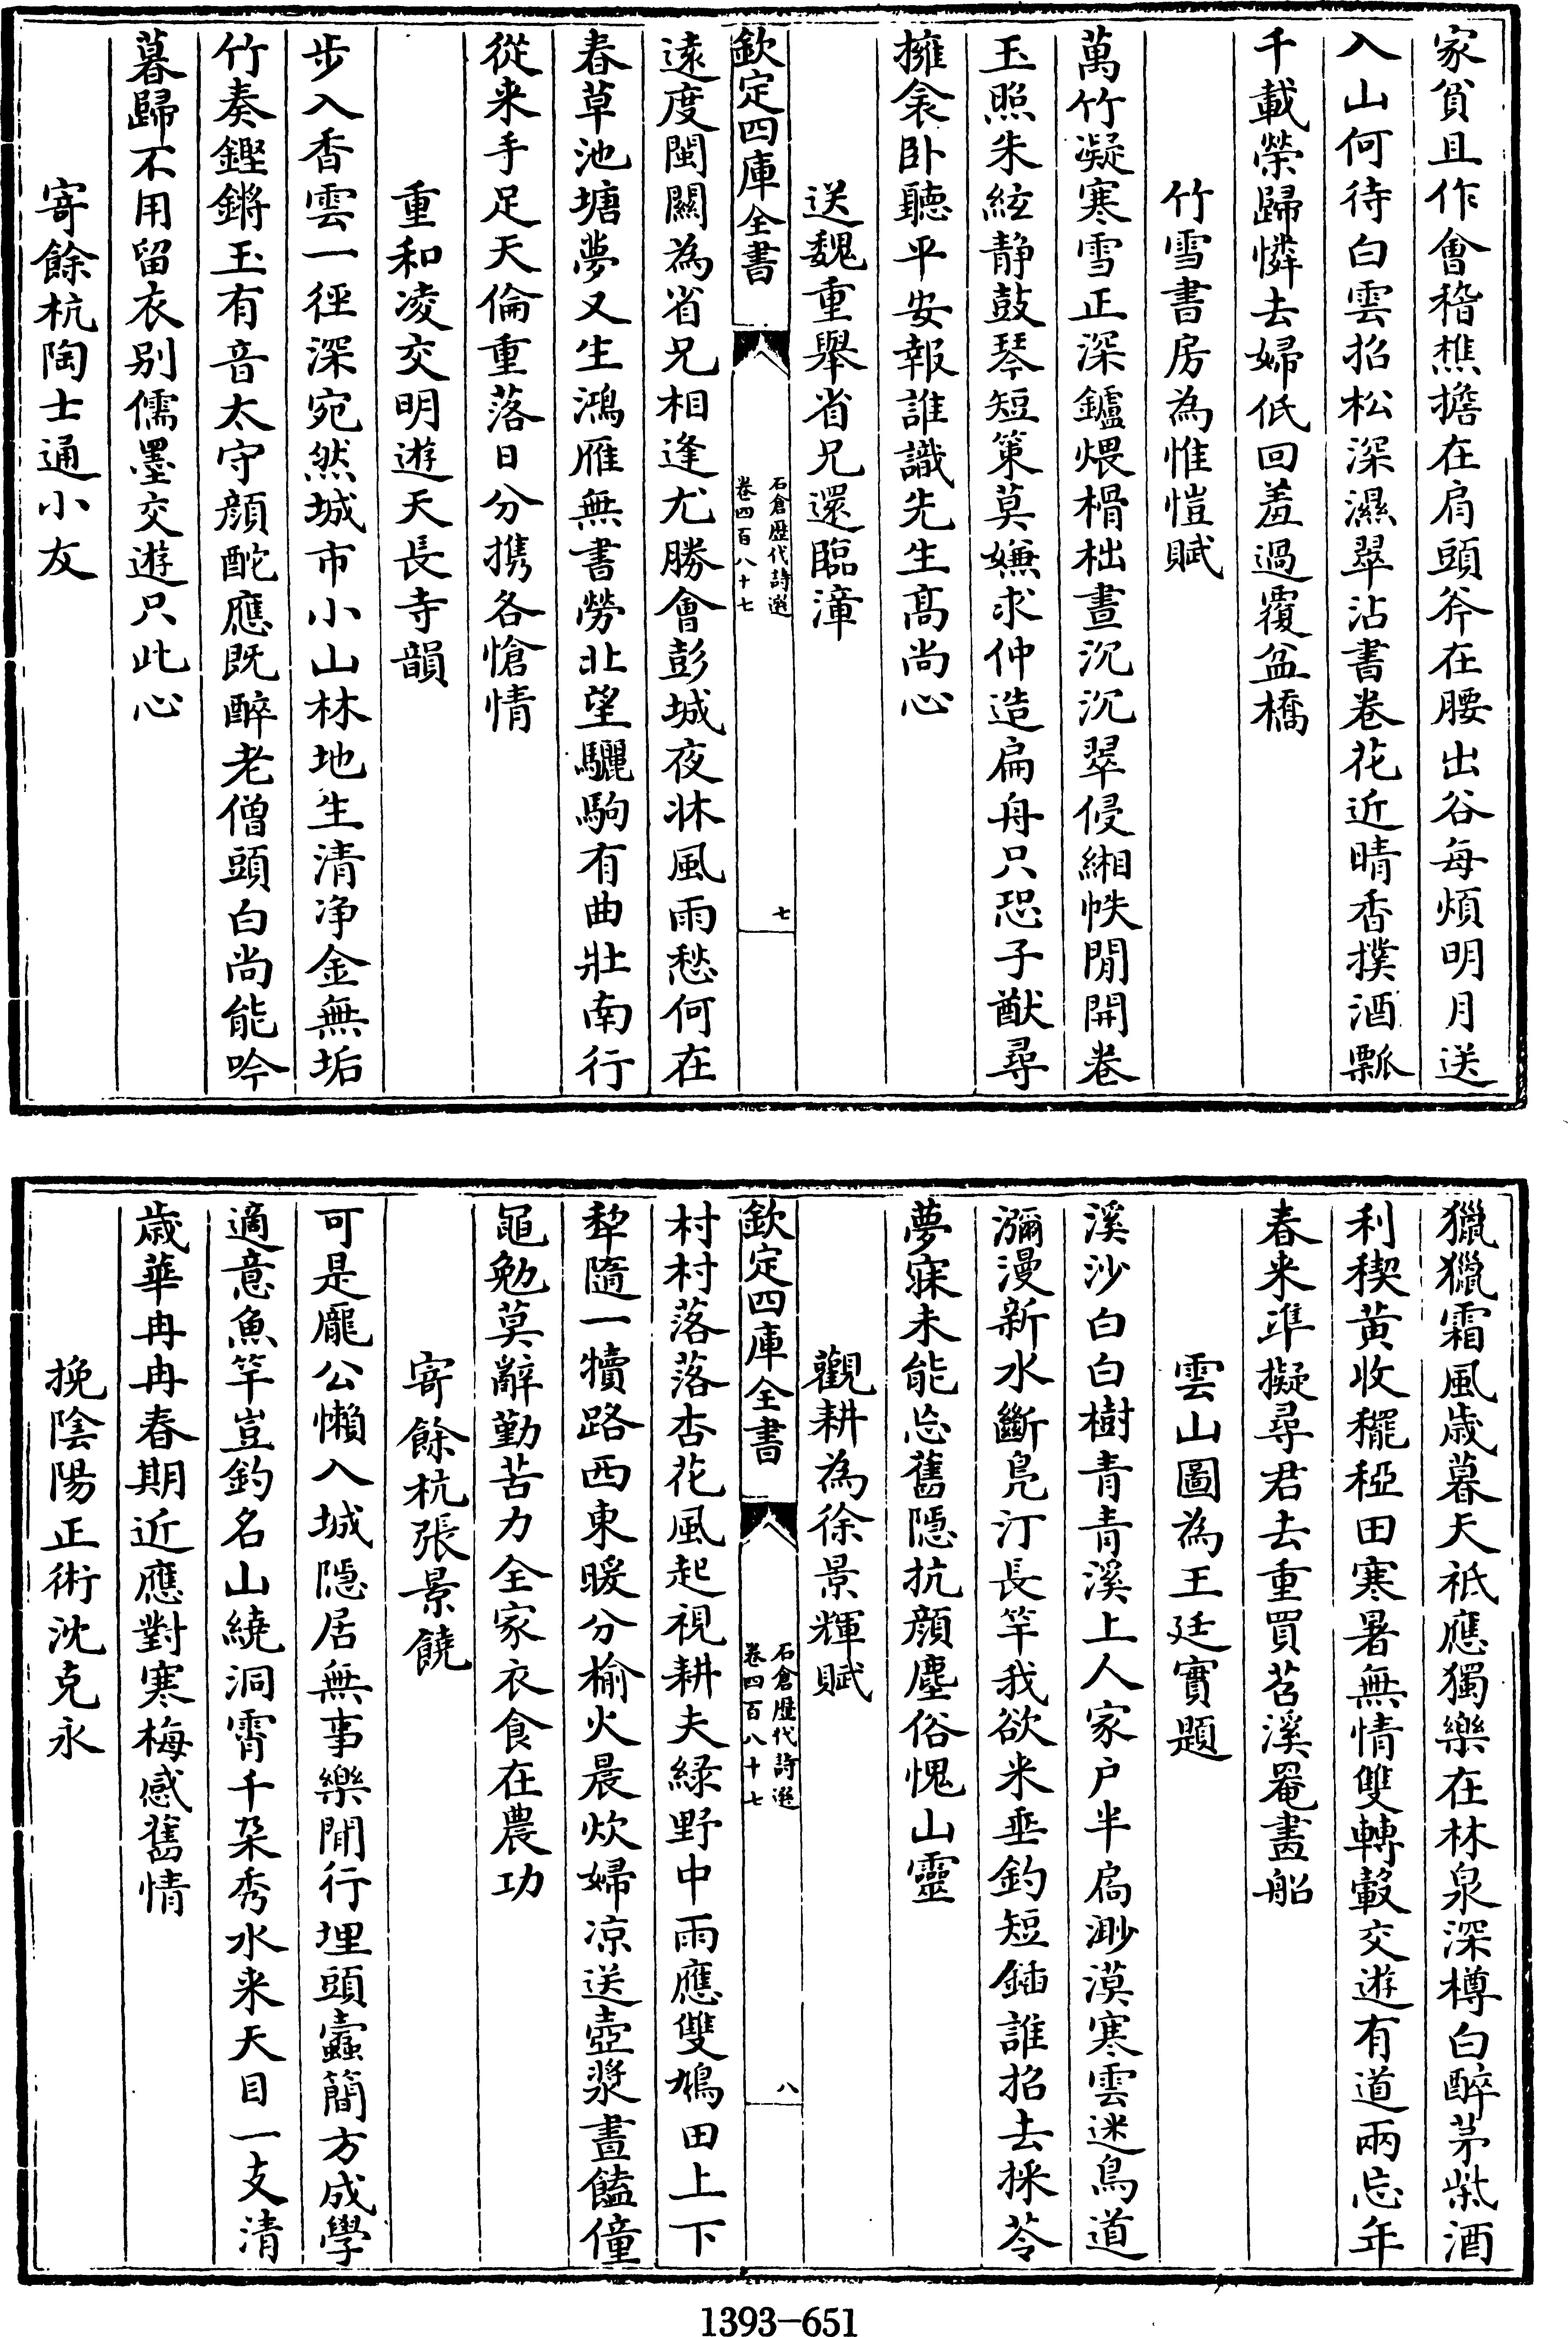 家貧且作會稽樵擔在肩頭斧在腰出谷每煩明月送
入山何待白雲招松深濕翠沾書卷花近晴香撲酒瓢
千載榮歸憐去婦低回羞過覆盆橋
竹雪書房為惟愷賦
萬竹凝寒雪正深鑪煨榾柮晝沉沉翠侵緗帙閒開卷
玉照朱絃静鼓琴短策莫嫌求仲造扁舟只恐子猷尋
擁衾卧聽平安報誰識先生髙尚心
送魏重舉省兄還臨漳
欽定四庫全書
石倉歷代詩選
卷四百八十七
七
遠度閩關為省兄相逢尤勝會彭城夜牀風雨愁何在
春草池塘夢又生鴻雁無書勞北望驪駒有曲壯南行
從来手足天倫重落日分携各愴情
重和凌交明遊天長寺韻
步入香雲一徑深宛然城市小山林地生清净金無垢
竹奏鏗鏘玉有音太守顔酡應既醉老僧頭白尚能吟
暮歸不用留衣别儒墨交遊只此心
寄餘杭陶士通小友
獵獵霜風歳暮天祗應獨樂在林泉深樽白醉茅柴酒
利稧黄收䆉稏田寒暑無情雙轉轂交遊有道兩忘年
春来準擬尋君去重買苕溪罨畫船
雲山圖為王廷實題
溪沙白白樹青青溪上人家户半扃渺漠寒雲迷鳥道
瀰漫新水斷凫汀長竿我欲来垂釣短鍤誰招去採苓
夢寐未能忘舊隠抗顔塵俗愧山靈
觀耕為徐景輝賦
欽定四庫全書
石倉歷代詩選
卷四百八十七
八
村村落落杏花風起視耕夫緑野中雨應雙鳩田上下
犂隨一犢路西東暖分榆火晨炊婦凉送壺漿晝饁僮
黽勉莫辭勤苦力全家衣食在農功
寄餘杭張景饒
可是龎公懶入城隠居無事樂閒行埋頭蠹簡方成學
適意魚竿豈釣名山繞洞霄千朶秀水来天目一支清
歳華冉冉春期近應對寒梅感舊情
挽陰陽正術沈克永
1393-651